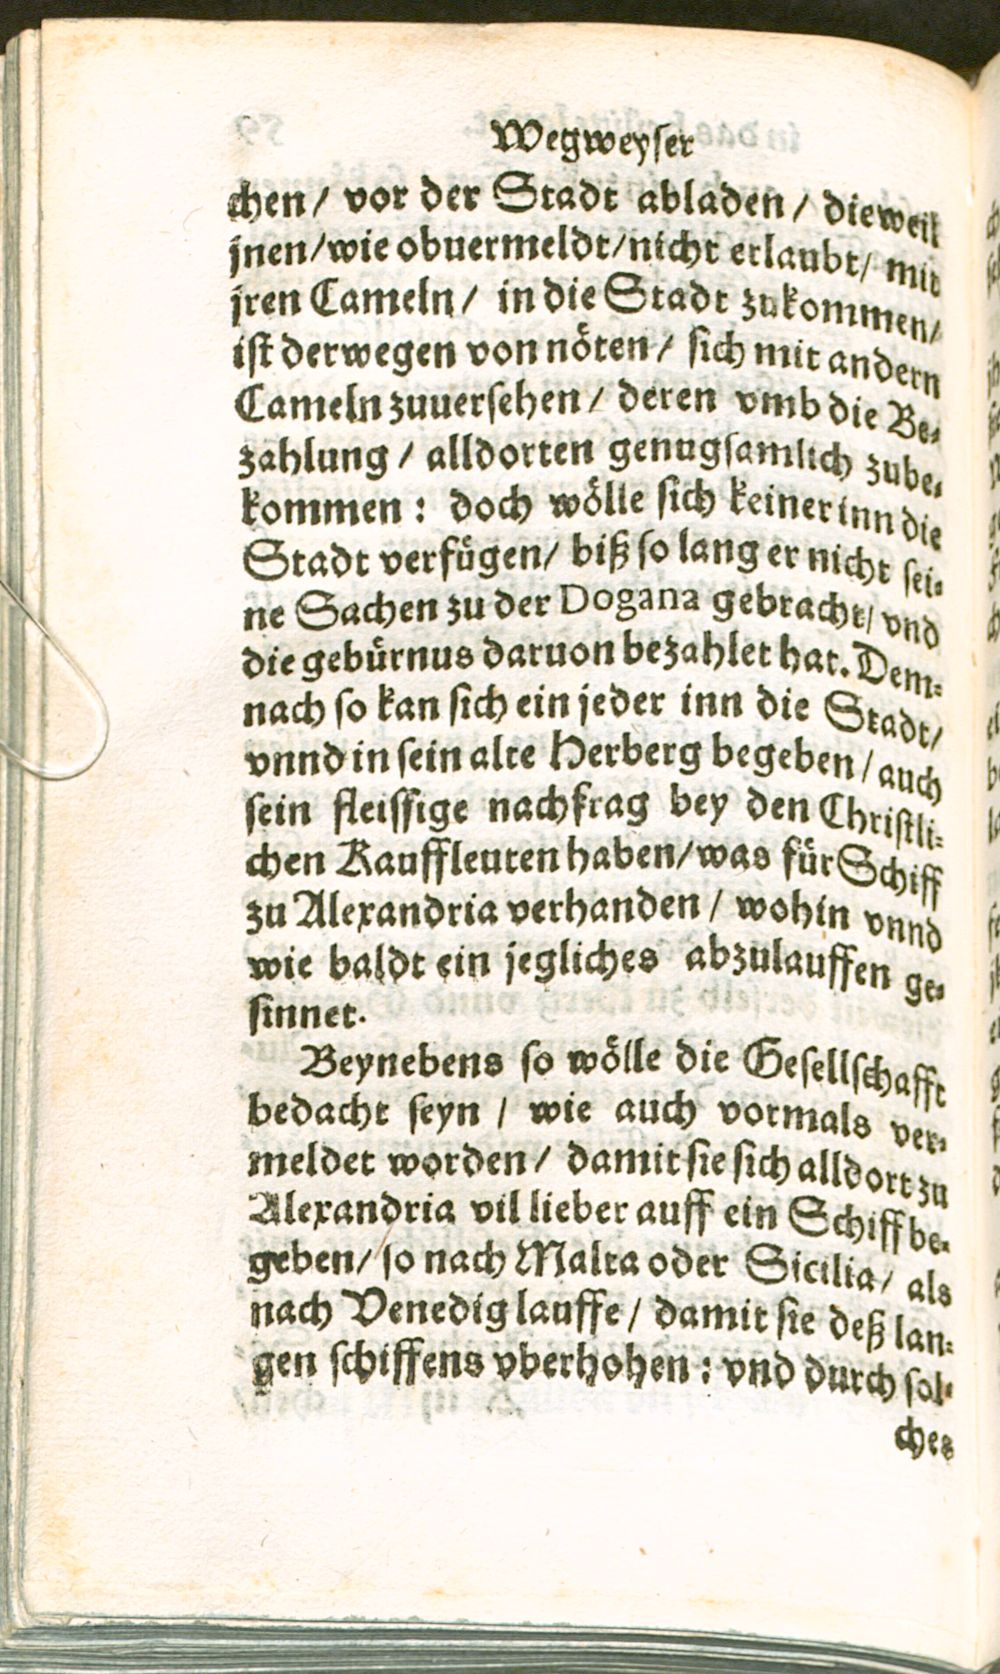 Wegweyser
chen/ vor der Stadt abladen/ dieweil
jnen/wie obuermeldt/nicht erlaubt/ mit
jren Cameln/ in die Stadt zukommen/
ist derwegen von nöten/ sich mit andern
Cameln zuuersehen/ deren vmb die Be-
zahlung/ alldorten genugsamlich zube-
kommen: doch wölle sich keiner inn die
Stadt verfügen/ biß so lang er nicht sei-
ne Sachen zu der Dogana gebracht/ vnd
die gebürnus daruon bezahlet hat. Dem-
nach so kan sich ein jeder inn die Stadt/
vnnd in sein alte Herberg begeben/ auch
sein fleissige nachfrag bey den Christli-
chen Kauffleuten haben/was für Schiff
zu Alexandria verhanden/ wohin vnnd
wie baldt ein jegliches abzulauffen ge-
sinnet.
Beynebens so wölle die Gesellschafft
bedacht seyn/ wie auch vormals ver-
meldet worden/ damit sie sich alldort zu
Alexandria vil lieber auff ein Schiff be-
geben/ so nach Malta oder Sicilia/ als
nach Venedig lauffe/ damit sie deß lan-
gen schiffens vberhohen: vnd durch sol-
ches